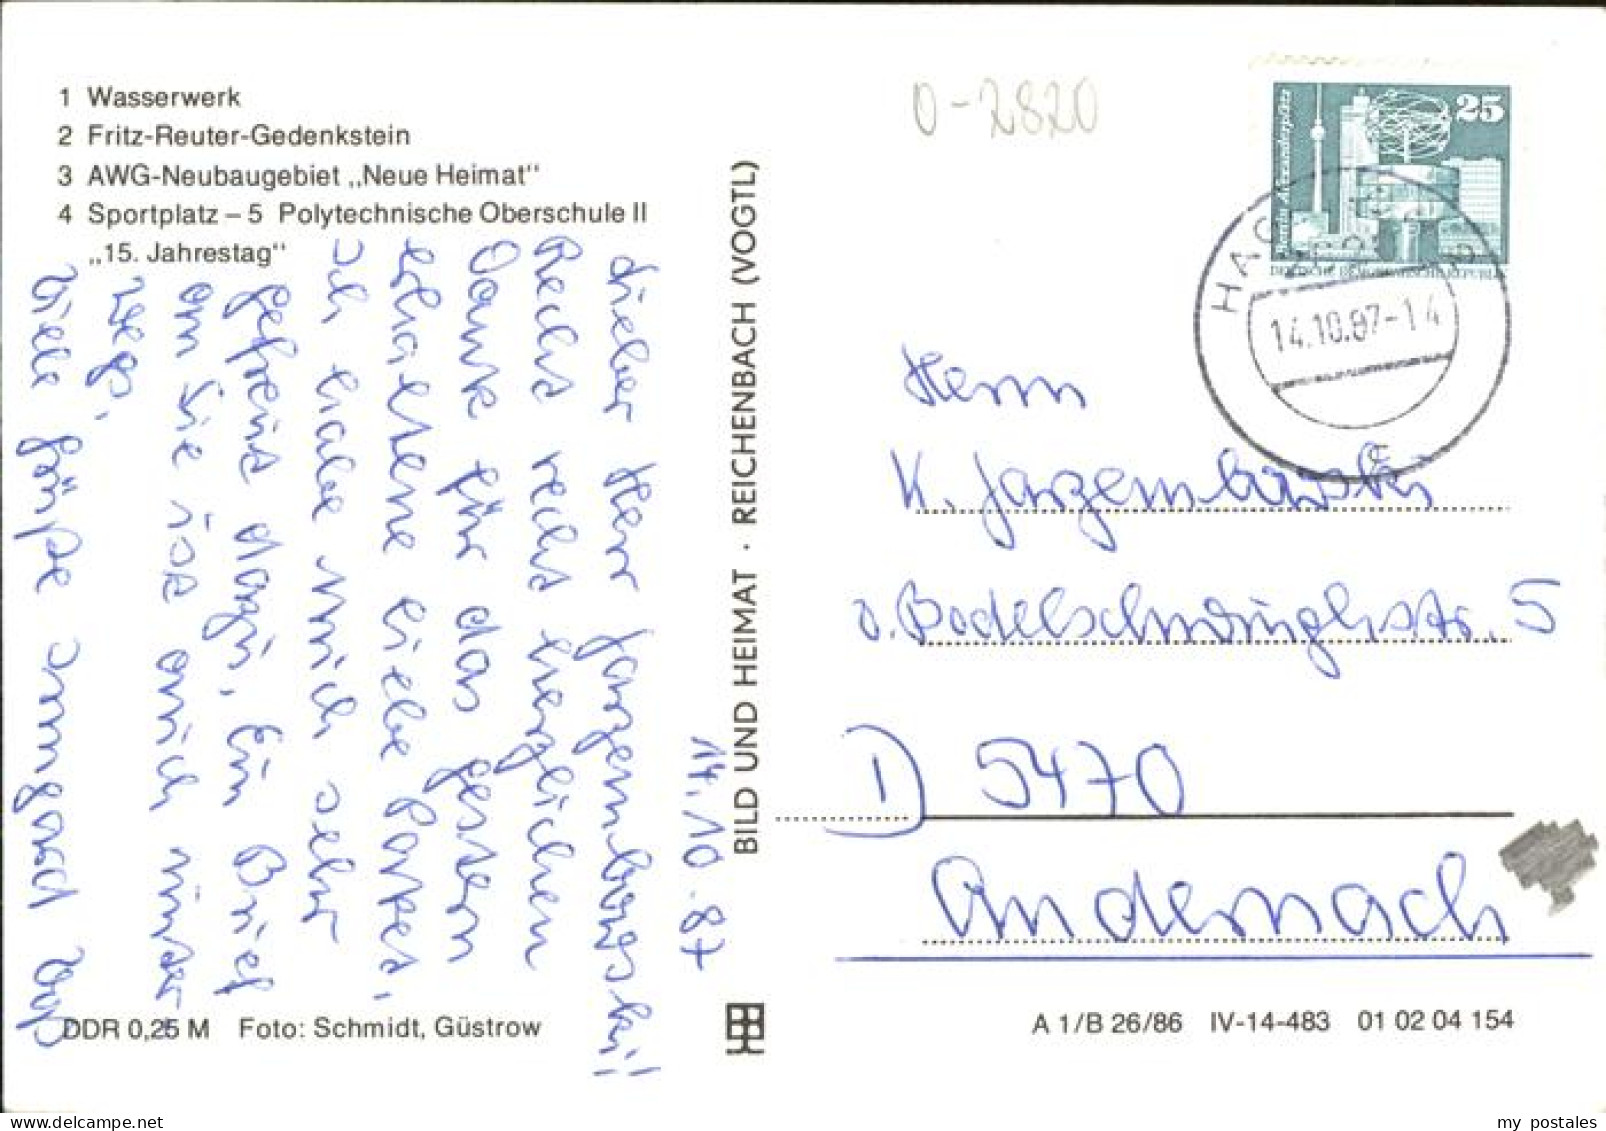 1 Wasserwerk
2 Fritz-Reuter-Gedenkstein
3 AWG-Neubaugebiet „Neue Heimat"
4 Sportplatz – 5 Polytechnische Oberschule II
„15. Jahrestag"
14.10.87
Lieber Herr Jarzembowski!
Recht recht herzlichen
Dank für das gestern
erhaltene liebe Paket,
ich habe mich sehr
gefreut dazu. Ein Brief
an Sie ist auch unter-
wegs.
Viele Grüße Irmgard
DDR 0,25 M Foto: Schmidt, Güstrow
BILD UND HEIMAT · REICHENBACH (VOGTL)
0-2820
25
Berlin Alexanderplatz
DEUTSCHE DEMOKRATISCHE REPUBLIK
14.10.87-14
Herrn
K. Jarzembowski
v. Bodelschwinghstr. 5
D 5470
Andernach
A 1/B 26/86 IV-14-483 01 02 04 154
www.mypostales.com
my postales